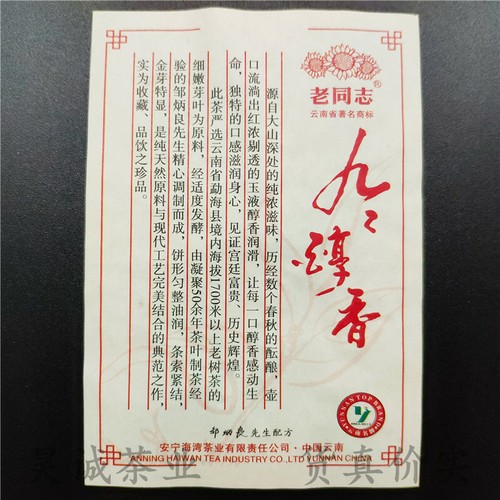 老同志®
云南省著名商标
九二醇香
源自大山深处的纯浓滋味，历经数个春秋的酝酿，壶
口流淌出红浓剔透的玉液醇香润滑，让每一口醇香感动生
命，独特的口感滋润身心，见证宫廷富贵、历史辉煌。
此茶严选云南省勐海县境内海拔1700米以上老树茶的
细嫩芽叶为原料，经适度发酵，由凝聚50余年茶叶制茶经
验的邹炳良先生精心调制而成，饼形匀整油润，条索紧结，
金芽特显，是纯天然原料与现代工艺完美结合的典范之作，
实为收藏、品饮之珍品。
邹炳良 先生配方
安宁海湾茶业有限责任公司·中国云南
ANNING HAIWAN TEA INDUSTRY CO.,LTD YUNNAN CHINA
YUNNAN TOP BRAND
诚茶业 货真价实